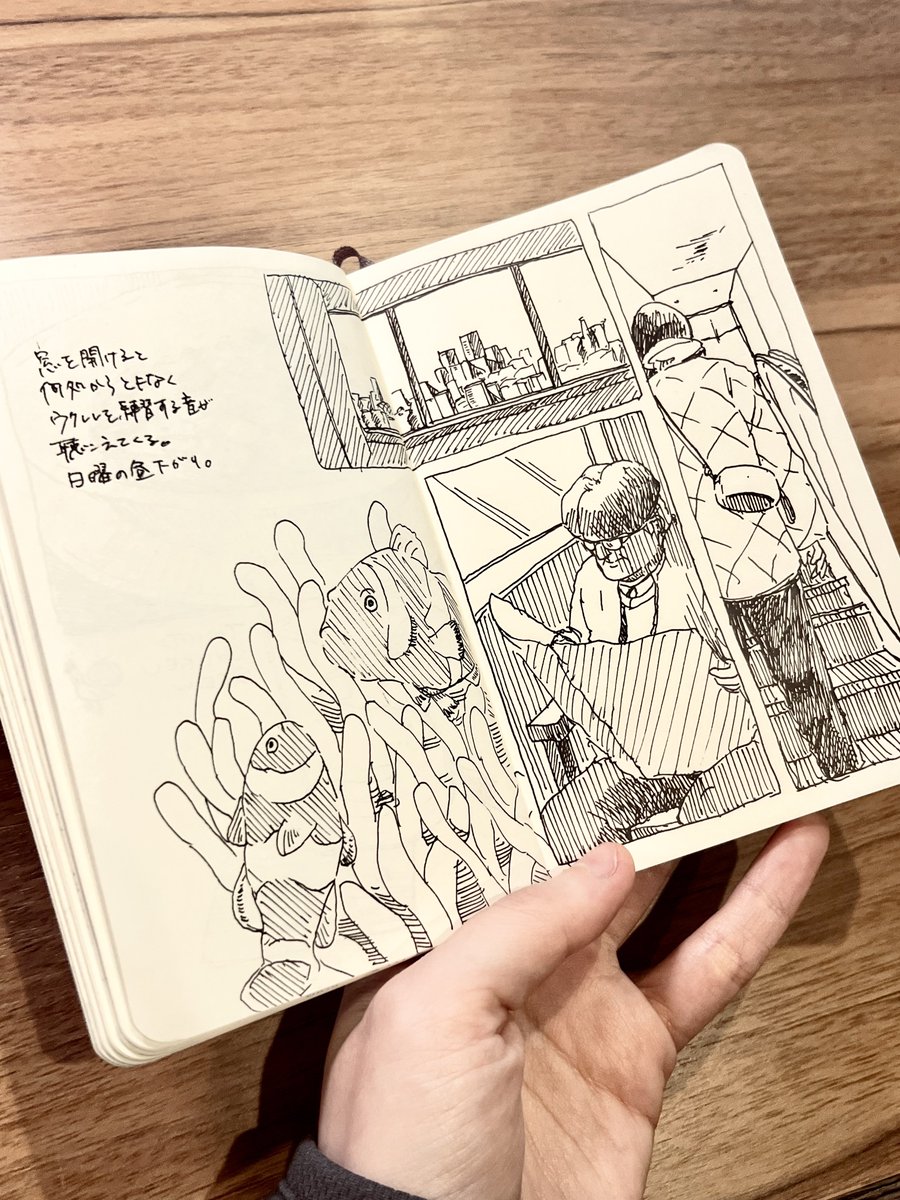 窓を開けると
何処からとなく
ウクレレを練習する音が
聴こえてくる。
日曜の昼下がり。